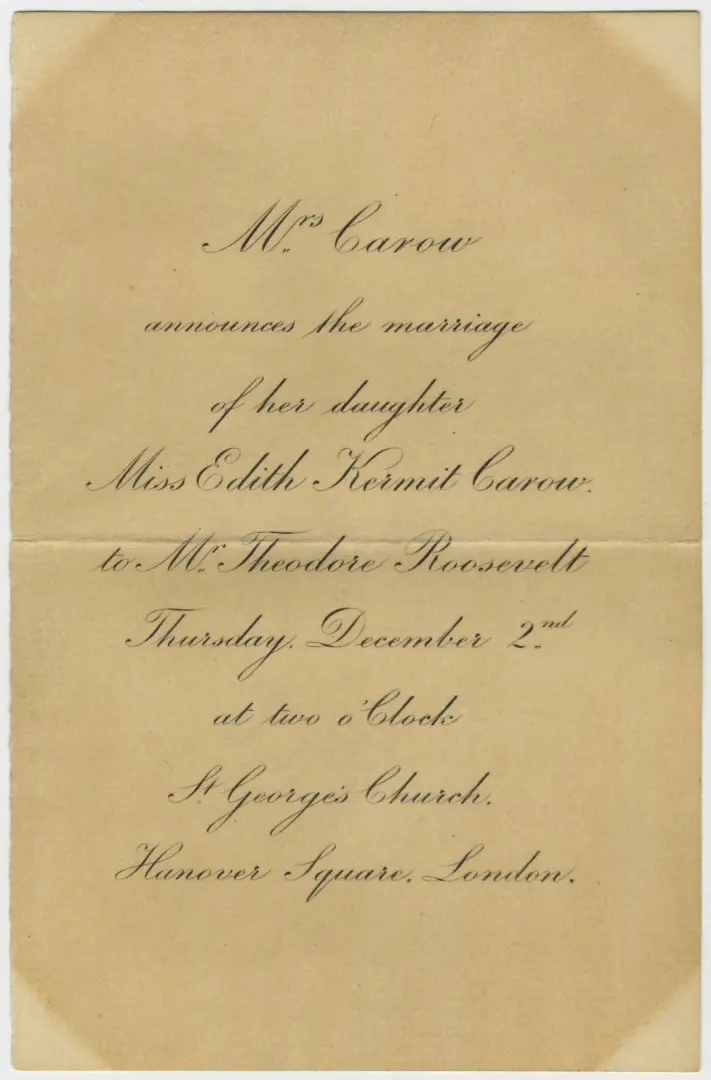 Mrs. Carow
announces the marriage
of her daughter
Miss Edith Kermit Carow.
to Mr. Theodore Roosevelt
Thursday. December 2nd.
at two o'Clock
St George's Church.
Hanover Square. London.